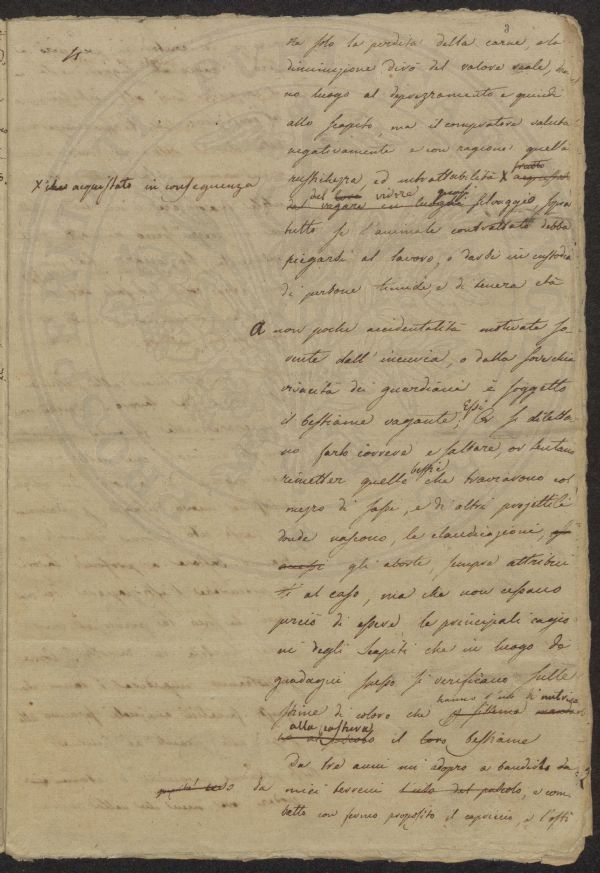 8
ra solo la perdita della carne, e la
diminuzione dirò del valore reale, han-
no luogo al deprezzamento e quindi
allo scapito, ma il compratore valuta
negativamente e con ragione quella
rustichezza ed intrattabilità X
X acquistato in conseguenza
del vivere quasi selvaggio, sopra
tutto se l'animale contrattato debba
piegarsi al lavoro, o darsi in custodia
di persone timide, e di tenera età
A non poche accidentalità motivate so-
vente dall'incuria, o dalla soverchia
vivacità dei guardiani è soggetto
il bestiame vagante; Essi si diletta-
no farlo correre e saltare, or tentano
rimetter quelle bestie che traviarono col
mezzo di sassi, e di altri projettili
donde nascono, le claudicazioni,
gli aborti, sempre attribui
ti al caso, ma che non cessano
perciò di essere le principali cagio
ni degli scapiti che in luogo de
guadagni spesso si verificano sulle
stime di coloro che hanno l'uso di nutrire
alla pastura il loro bestiame
Da tre anni mi adopro a bandirlo da
miei terreni tolo del pascolo, e com
batto con fermo proposito il capriccio, e l'osti